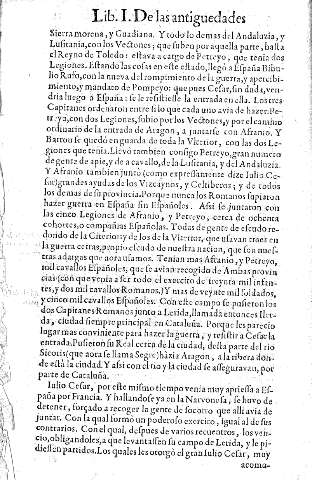 Lib. I. De las antiguedades
Sierra morena, y Guadiana. Y todo lo demas del Andaluzia, y
Lusitania, con los Vectones; que suben por aquella parte, hasta
el Reyno de Toledo: estava a cargo de Petreyo, que tenia dos
Legiones. Estando las cosas en este estado, llegó a España Bibu-
lio Rufo, con la nueva del rompimiento de la guerra, y apercibi-
miento, y mandato de Pompeyo: que pues Cesar, sin duda, ven-
dria luego a España: se le resistiesse la entrada en ella. Los tres
Capitanes ordenaron entre si lo que cada uno avia de hazer. Pe-
treyo, con dos Legiones, subio por los Vectones, y por el camino
ordinario de la entrada de Aragon, a juntarse con Afranio. Y
Barron se quedó en guarda de toda la Vlterior, con las dos Le-
giones que tenia. Llevó tambien consigo Petreyo, gran numero
de gente de a pie, y de a cavallo, de la Lusitania, y del Andaluzia.
Y Afranio tambien juntó (como expressamente dize Iulio Ce-
sar) grandes ayudas de los Vizcaynos, y Celtiberos; y de todos
los demas de su provincia. Porque nunca los Romanos supieron
hazer guerra en España sin Españoles. Assi se juntaron con
las cinco Legiones de Afranio, y Petreyo, cerca de ochenta
cohortes, o compañias Españolas. Todas de gente de escudo re-
dondo de la Citerior; y de los de la Vlterior, que usavan traer en
la guerra cetras, proprio escudo de nuestra nacion, que son nues-
tras adargas que aora usamos. Tenian mas Afranio, y Petreyo,
mil cavallos Españoles, que se avian recogido de Ambas provin
cias: con que venia a ser todo el exercito de treynta mil infan-
tes, y dos mil cavallos Romanos, y mas de veynte mil soldados,
y cinco mil cavallos Españoles. Con este campo se pusieron los
dos Capitanes Romanos junto a Lerida, llamada entonces Iler-
da, ciudad siempre principal en Cataluña. Porque les parecio
lugar mas conveniente para hazer la guerra, y resistir a Cesar la
entrada. Pusieron su Real cerca de la ciudad, desta parte del rio
Sicoris (que aora se llama Segre) házia Aragon, a la ribera don-
de està la ciudad. Y assi con el rio y la ciudad se asseguravan, por
parte de Cataluña.
Iulio Cesar, por este mismo tiempo venia muy apriessa a Es-
paña por Francia. Y hallandose ya en la Narvonesa, se huvo de
detener, forçado a recoger la gente de socorro que alli avia de
juntar. Con la qual formó un poderoso exercito, igual al de ses
contrarios. Con el qual, despues de varios recuentros, los ven-
cio, obligandoles, a que levantassen su campo de Lerida, y le pi-
diessen partidos. Los quales les otorgó el gran Iulio Cesar, muy
acomo-